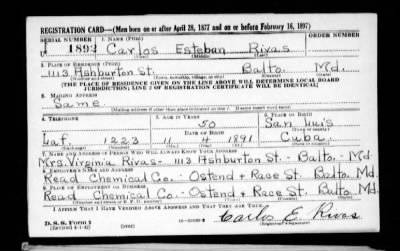 REGISTRATION CARD—(Men born on or after April 28, 1877 and on or before February 16, 1897)
SERIAL NUMBER 1. NAME (Print) ORDER NUMBER
U 1892 Carlos Esteban Rivas
2. PLACE OF RESIDENCE (Print)
1113 Ashburton St. Balto. Md.
(Number and street) (Town, township, village, or city) (County) (State)
[THE PLACE OF RESIDENCE GIVEN ON THE LINE ABOVE WILL DETERMINE LOCAL BOARD
JURISDICTION; LINE 2 OF REGISTRATION CERTIFICATE WILL BE IDENTICAL]
3. MAILING ADDRESS
Same.
[Mailing address if other than place indicated on line 2. If same insert word same]
4. TELEPHONE 5. AGE IN YEARS 6. PLACE OF BIRTH
50 San Luis
DATE OF BIRTH
Laf. 1223 11 4 1891 Cuba
7. NAME AND ADDRESS OF PERSON WHO WILL ALWAYS KNOW YOUR ADDRESS
Mrs. Virginia Rivas - 1113 Ashburton St. - Balto. - Md.
8. EMPLOYER'S NAME AND ADDRESS
Read Chemical Co. - Ostend + Race St. Balto. Md.
9. PLACE OF EMPLOYMENT OR BUSINESS
Read Chemical Co. - Ostend + Race St. Balto. Md.
I AFFIRM THAT I HAVE VERIFIED ABOVE ANSWERS AND THAT THEY ARE TRUE.
D. S. S. Form 1
(Revised 4-1-42) (over) Carlos E. Rivas